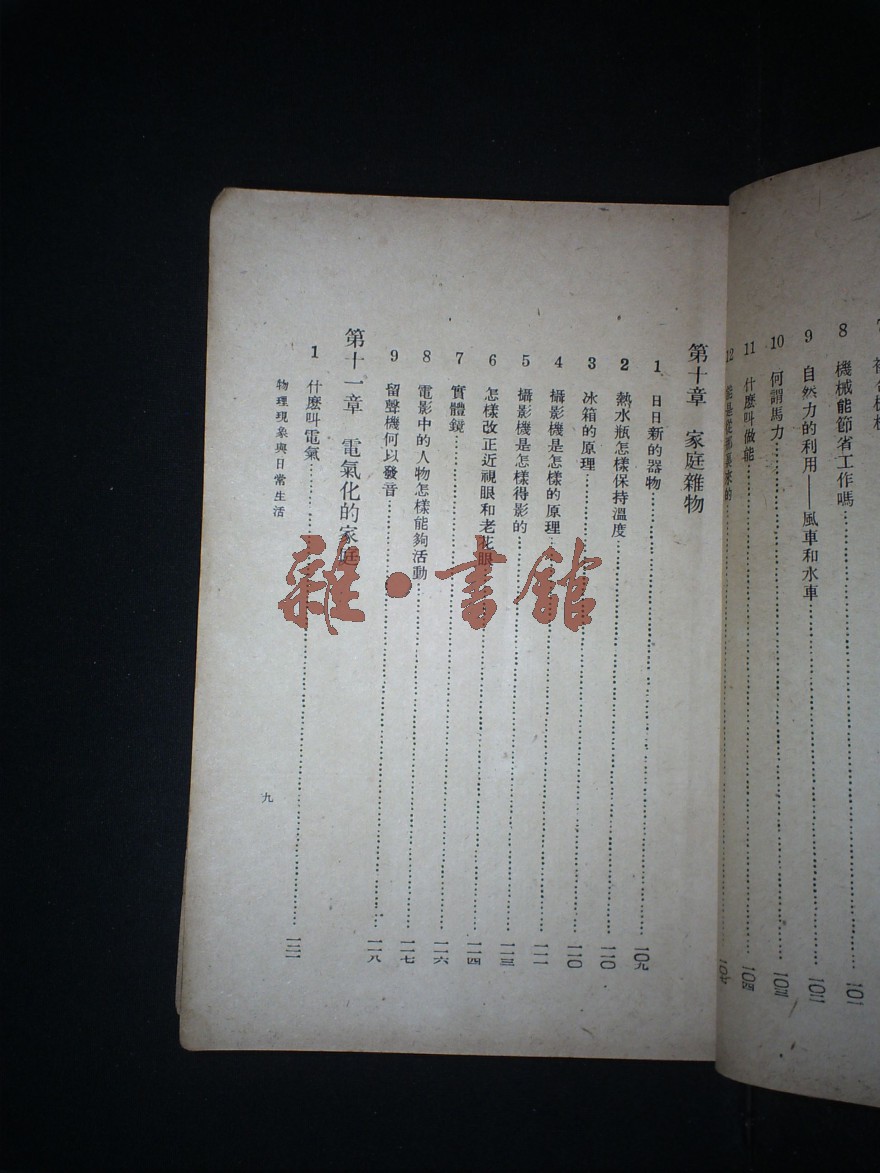 8 機械能節省工作嗎……一〇一
9 自然力的利用——風車和水車……一〇二
10 何謂馬力……一〇三
11 什麼叫做能……一〇四
12 能是從那裏來的
第十章 家庭雜物
1 日日新的器物……一〇九
2 熱水瓶怎樣保持溫度……一一〇
3 冰箱的原理……一一〇
4 攝影機是怎樣的原理……一一一
5 攝影機是怎樣得影的……一一三
6 怎樣改正近視眼和老花眼……一一四
7 實體鏡……一一六
8 電影中的人物怎樣能夠活動……一一七
9 留聲機何以發音……一一八
第十一章 電氣化的家庭
1 什麼叫電氣……一二一
物理現象與日常生活
九
雜·書館